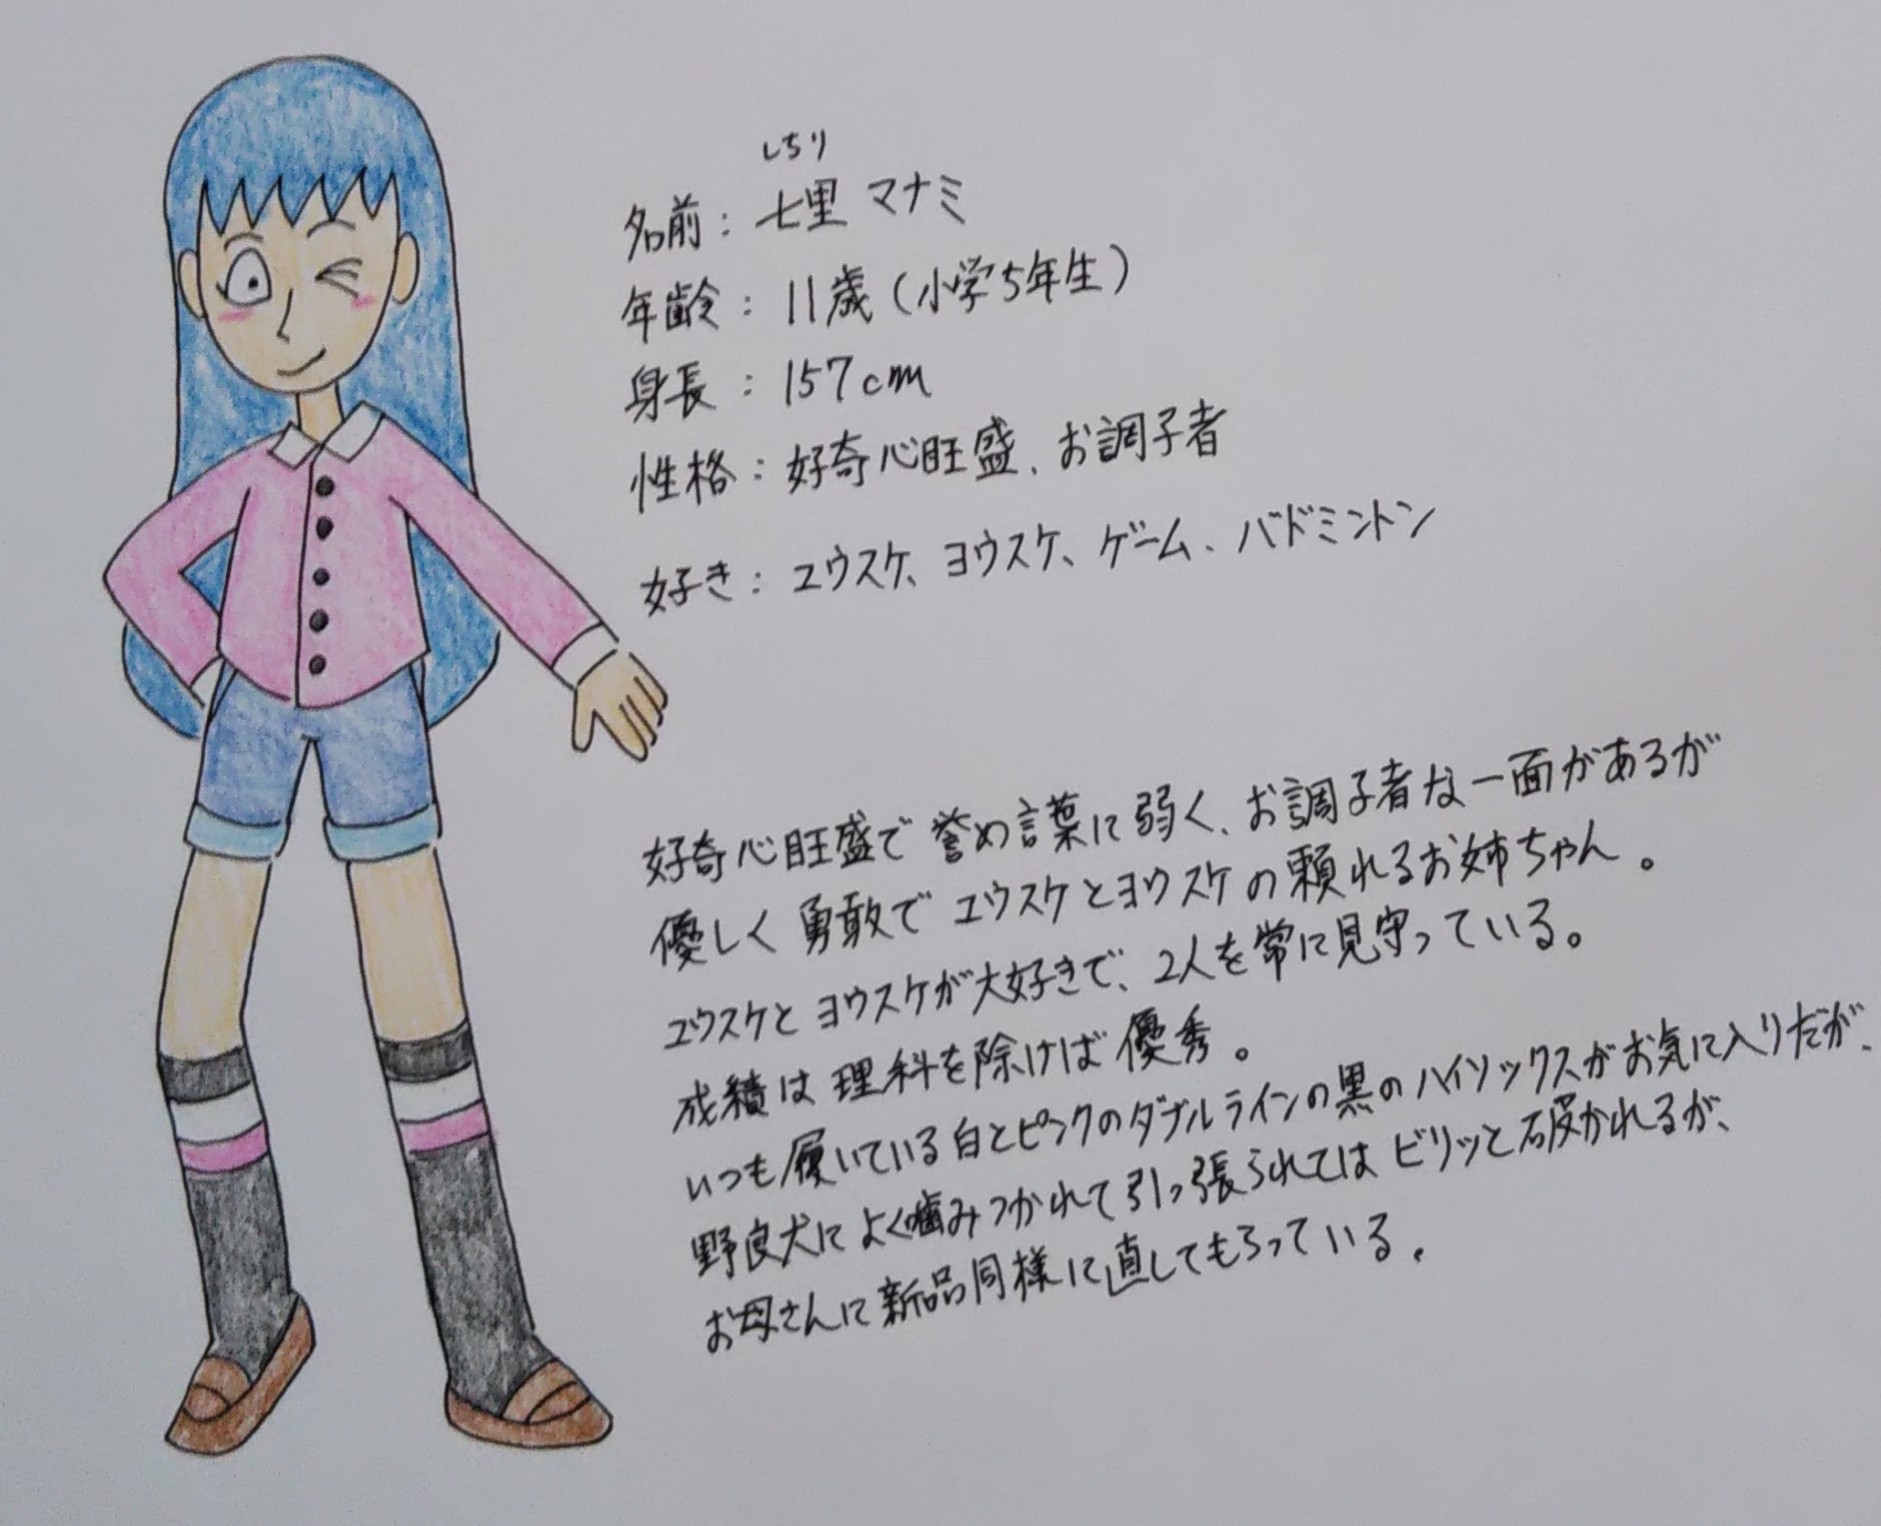 しちり
名前：七里 マナミ
年齢：11歳（小学5年生）
身長：157cm
性格：好奇心旺盛、お調子者
好き：ユウスケ、ヨウスケ、ゲーム、バドミントン
好奇心旺盛で誉め言葉に弱く、お調子者な一面があるが
優しく勇敢でユウスケとヨウスケの頼れるお姉ちゃん。
ユウスケとヨウスケが大好きで、2人を常に見守っている。
成績は理科を除けば優秀。
いつも履いている白とピンクのダブルラインの黒のハイソックスがお気に入りだが、
野良犬によく噛みつかれて引っ張られてはビリッと破かれるが、
お母さんに新品同様に直してもらっている。